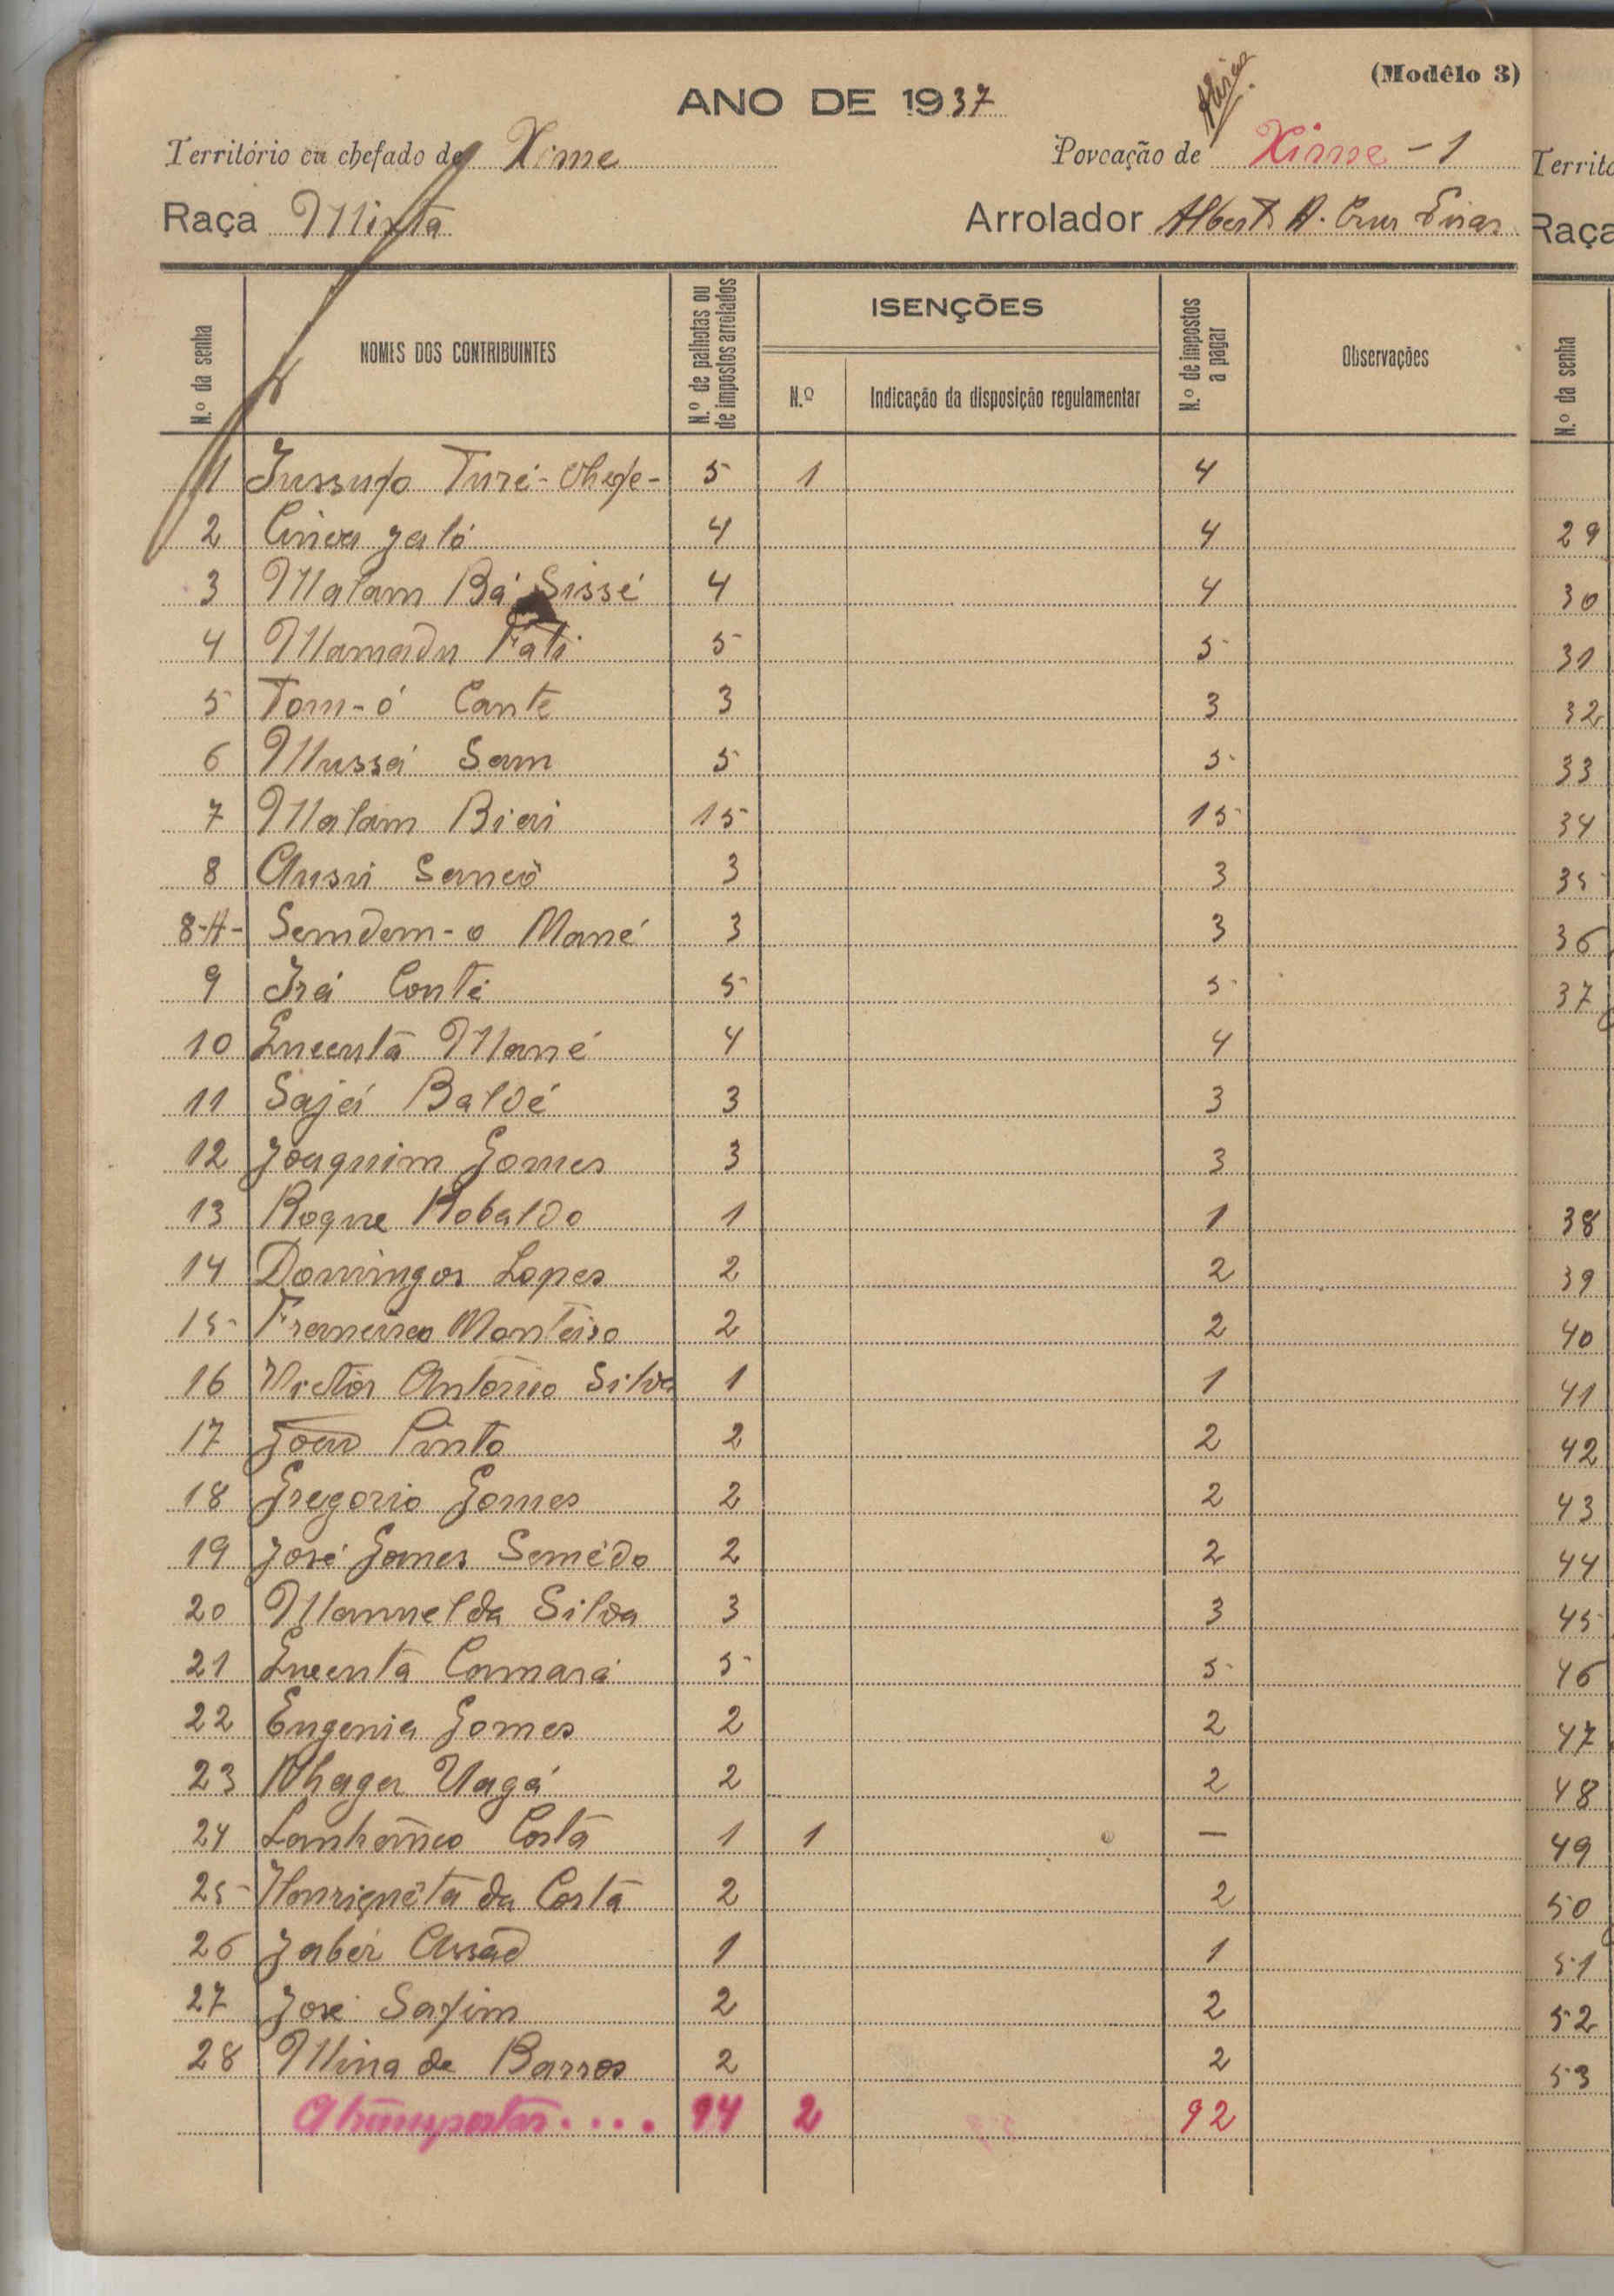 (Modêlo 3)
ANO DE 1937
Território ou chefado de Xime
Povoação de Xime - 1
Raça Mixta
Arrolador Albert A. Cruz
N.º da senha
NOMES DOS CONTRIBUINTES
N.º de palhotas ou de impostos arrolados
ISENÇÕES
N.º
Indicação da disposição regulamentar
N.º de impostos a pagar
Observações
1 Jussufo Turé - Chefe - 5 1 4
2 4 4
3 Malam Bá Sissé 4 4
4 Mamadu Fati 5 5
5 Tom-ó Cante 3 3
6 Mussá Sam 5 5
7 Malam Biai 15 15
8 Ansui Sancó 3 3
8-A- Semdem-o Mané 3 3
9 Irá Conté 5 5
10 Mané 4 4
11 Sajá Baldé 3 3
12 Joaquim Gomes 3 3
13 Roque Robaldo 1 1
14 Domingos Lopes 2 2
15 Francisco Monteiro 2 2
16 Victór António Silva 1 1
17 João Pinto 2 2
18 Gregorio Gomes 2 2
19 José Gomes Semêdo 2 2
20 Manuel da Silva 3 3
21 Camará 5 5
22 Eugenia Gomes 2 2
23 Nhaga Uagá 2 2
24 Costa 1 1 —
25 Henriquêta da Costa 2 2
26 Jabér Assad 1 1
27 José Safim 2 2
28 Mina de Barros 2 2
A transportar.... 94 2 92
Territó
Raça
N.º da senha
29
30
31
32
33
34
35
36
37
38
39
40
41
42
43
44
45
46
47
48
49
50
51
52
53